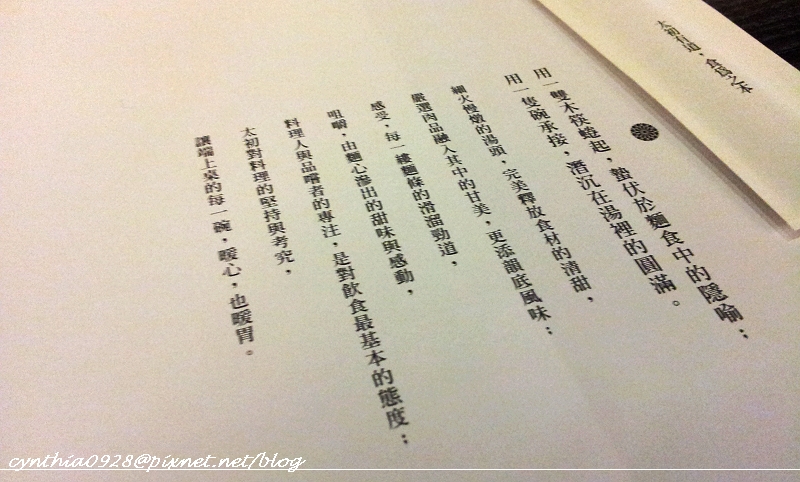 太初有道，食爲之本
用一雙木筷蜷起，蟄伏於麵食中的隱喻；
用一隻碗承接，潛沉在湯裡的圓滿。
細火慢燉的湯頭，完美釋放食材的清甜，
嚴選肉品融入其中的甘美，更添韻底風味；
感受，每一縷麵條的滑溜勁道，
咀嚼，由麵心滲出的甜味與感動，
料理人與品嚐者的專注，是對飲食最基本的態度；
太初對料理的堅持與考究，
讓端上桌的每一碗，暖心，也暖胃。
cynthia0928@pixnet.net/blog